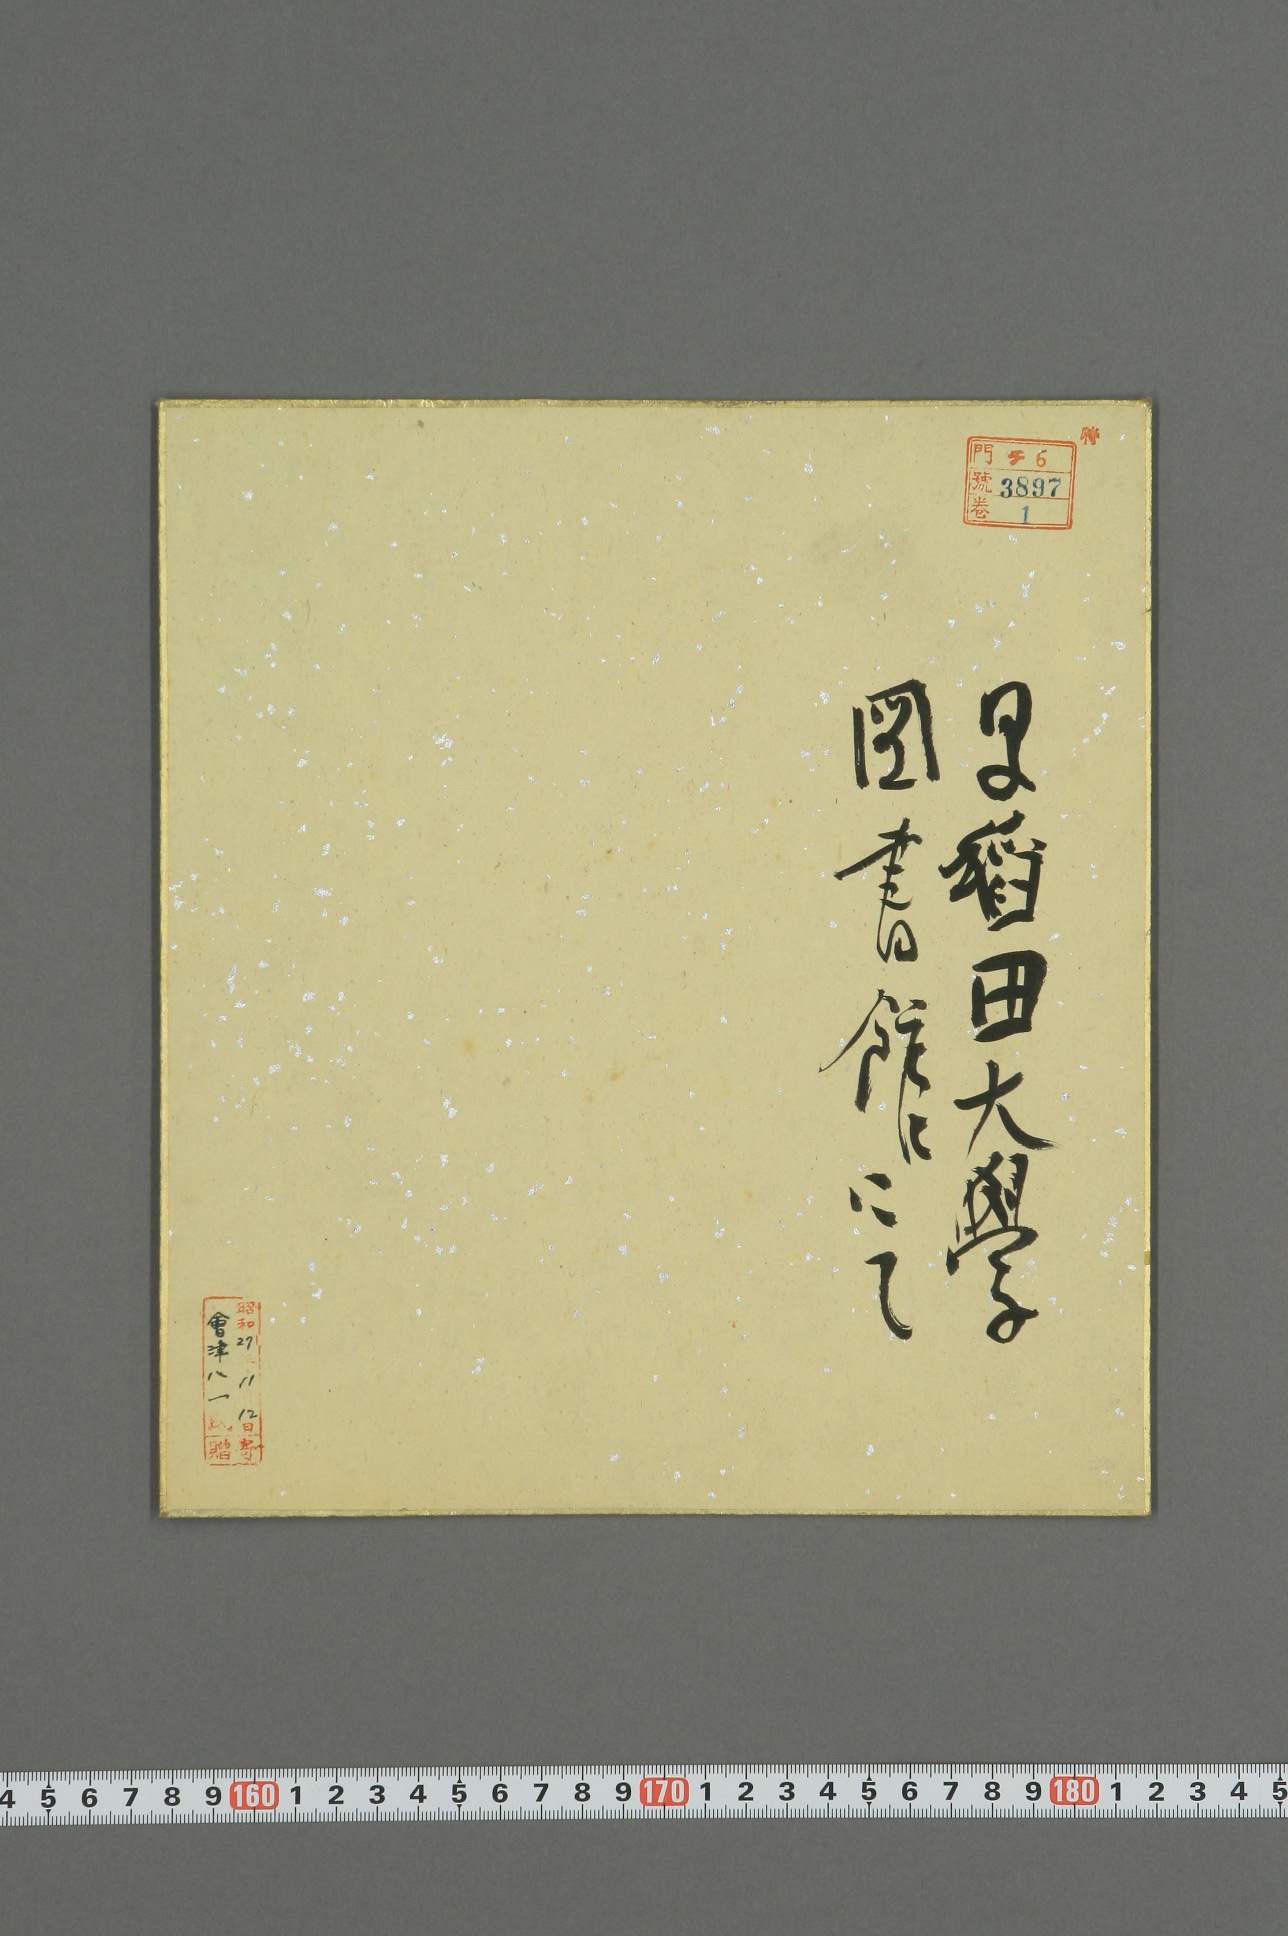 特
門 チ6
號 3897
巻 1
早稲田大學
圖書館にて
昭和27.11.12日寄
會津八一氏贈
4 5 6 7 8 9 160 1 2 3 4 5 6 7 8 9 170 1 2 3 4 5 6 7 8 9 180 1 2 3 4 5